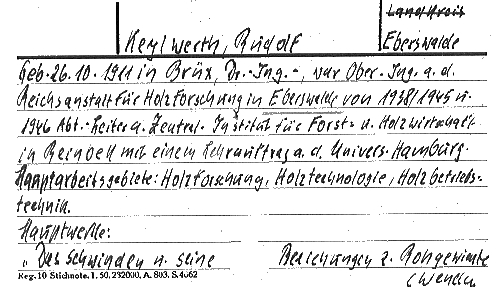 Landkreis
Keylwerth, Rudolf
Eberswalde
Geb. 26.10.1911 in Brüx, Dr.-Ing.-, war Ober-Ing. a. d.
Reichsanstalt für Holzforschung in Eberswalde von 1938/1945 u.
1946 Abt.-Leiter a. Zentral-Institut für Forst- u. Holzwirtschaft
in Reinbek mit einem Lehrauftrag a. d. Univers. Hamburg.
Hauptarbeitsgebiete: Holzforschung, Holztechnologie, Holzbetriebs-
technik.
Hauptwerke:
„Das Schwinden u. seine Beziehungen z. Rohgewichte
Keg. 10 Stichnote. 1. 50, 232000, A. 803. S. 4062